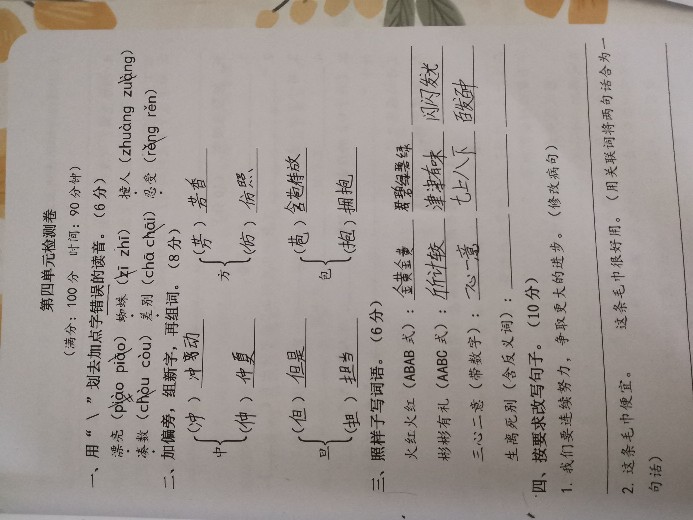 第四单元检测卷
(满分：100分 时间：90分钟)
一、用“\”划去加点字错误的读音。(6分)
漂亮(piào piǎo) 蜘蛛(zī zhī) 撞人(zhuàng zuàng)
凑数(chòu còu) 差别(chā chāi) 忍受(rěng rěn)
二、加偏旁，组新字，再组词。(8分)
中{(冲)冲动 (仲)仲夏 方{(芳)芳香 (仿)仿照
旦{(但)但是 (担)担当 包{(苞)含苞待放 (抱)拥抱
三、照样子写词语。(6分)
火红火红(ABAB式)：金黄金黄 碧绿碧绿
彬彬有礼(AABC式)：斤斤计较 津津有味 闪闪发光
三心二意(带数字)：一心一意 七上八下 百发百中
生离死别(含反义词)：
四、按要求改写句子。(10分)
1. 我们要连续努力，争取更大的进步。(修改病句)
2. 这条毛巾便宜。 这条毛巾很好用。(用关联词将两句话合为一
句话)